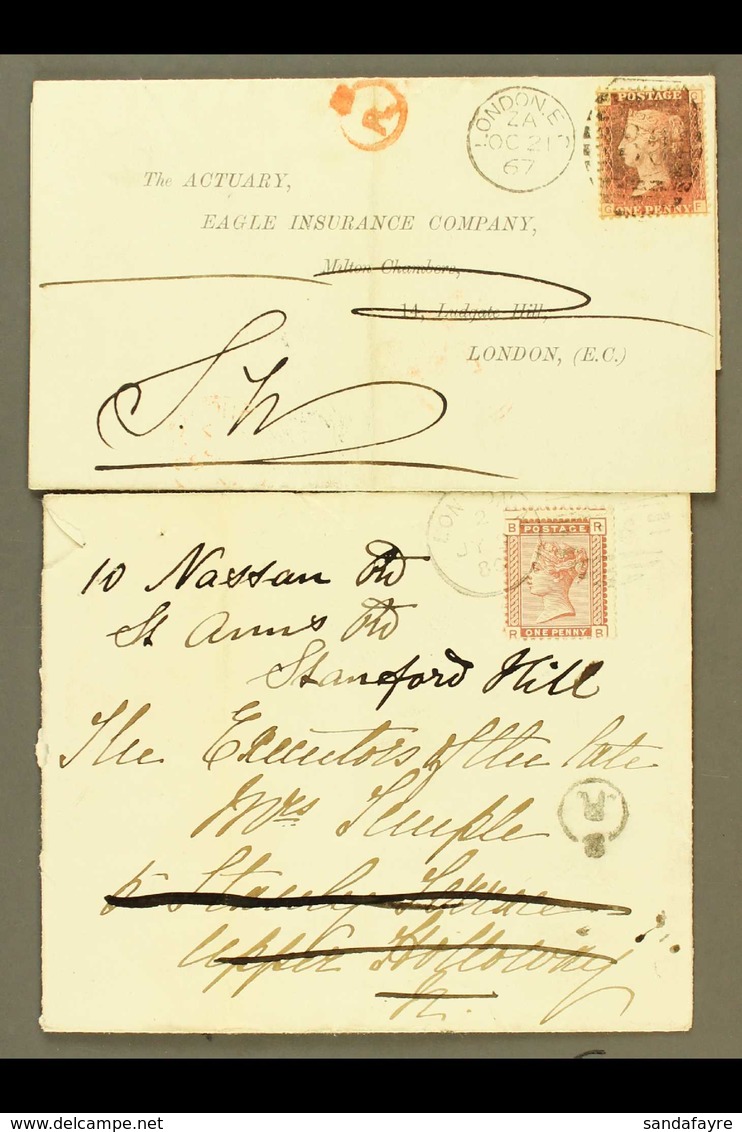 R
LONDON.E.C
2A
OC 21
67
POSTAGE
G F
ONE PENNY
The ACTUARY,
EAGLE INSURANCE COMPANY,
Milton Chambers,
14, Ludgate Hill,
LONDON, (E.C.)
S.W
LON
2
JY
B POSTAGE R
R ONE PENNY B
10 Nassau Rd
St Anns Rd
Stamford Hill
The Executors of the late
Mrs Temple
5 Stanley Terrace
Upper Holloway
N.
R
delcampe.net
sandafayre